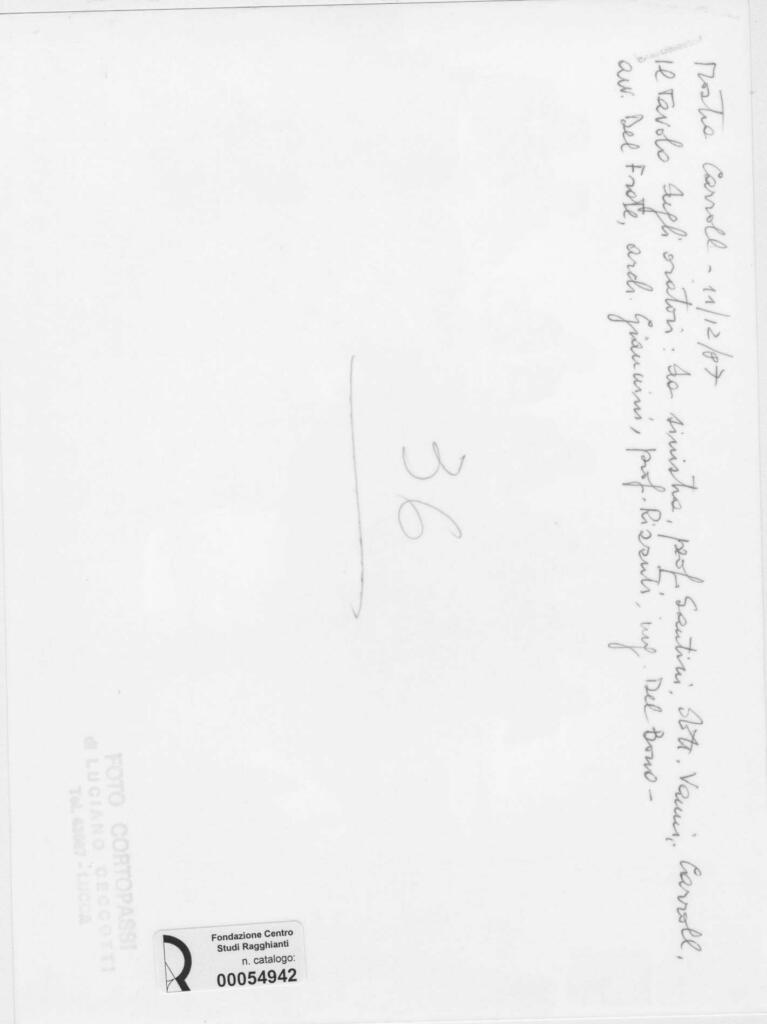 Mostra Carroll - 11/12/87
Il Tavolo degli oratori: da sinistra, prof. Santini, dott. Vanni, Carroll,
avv. Del Frate, arch. Giannini, prof. Rizzuti, ing. Del Bono -
36
FOTO CORTOPASSI
di LUCIANO CECCOTTI
Tel. - LUCCA
Fondazione Centro
Studi Ragghianti
n. catalogo:
00054942